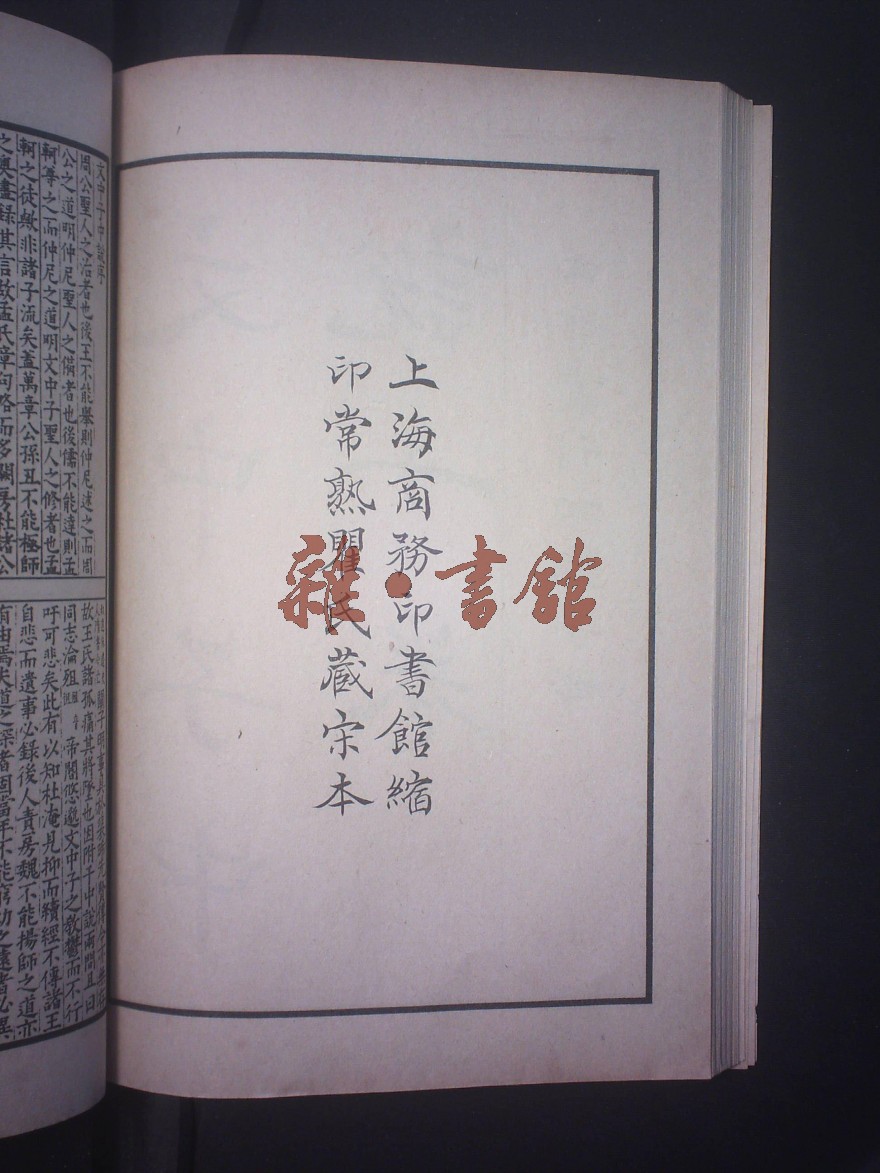 上海商務印書館縮
印常熟瞿氏藏宋本
雜·書館
文中子中說序
周公聖人之治者也後王不能舉則仲尼述之而周
公之道明仲尼聖人之備者也後儒不能達則孟
軻尊之而仲尼之道明文中子聖人之修者也孟
軻之徒歟非諸子流矣蓋萬章公孫丑不能極師
之奧盡錄其言故孟氏章句略而多闕房杜諸公
故王氏諸孤痛其將墜也因附于中說兩間且曰
同志淪殂帝閽悠邈文中子之教鬱而不行
吁可悲矣此有以知杜淹見抑而續經不傳諸王
自悲而遺事必錄後人責房魏不能揚師之道亦
有由焉夫道之深者固當年不能窮功之遠者必異